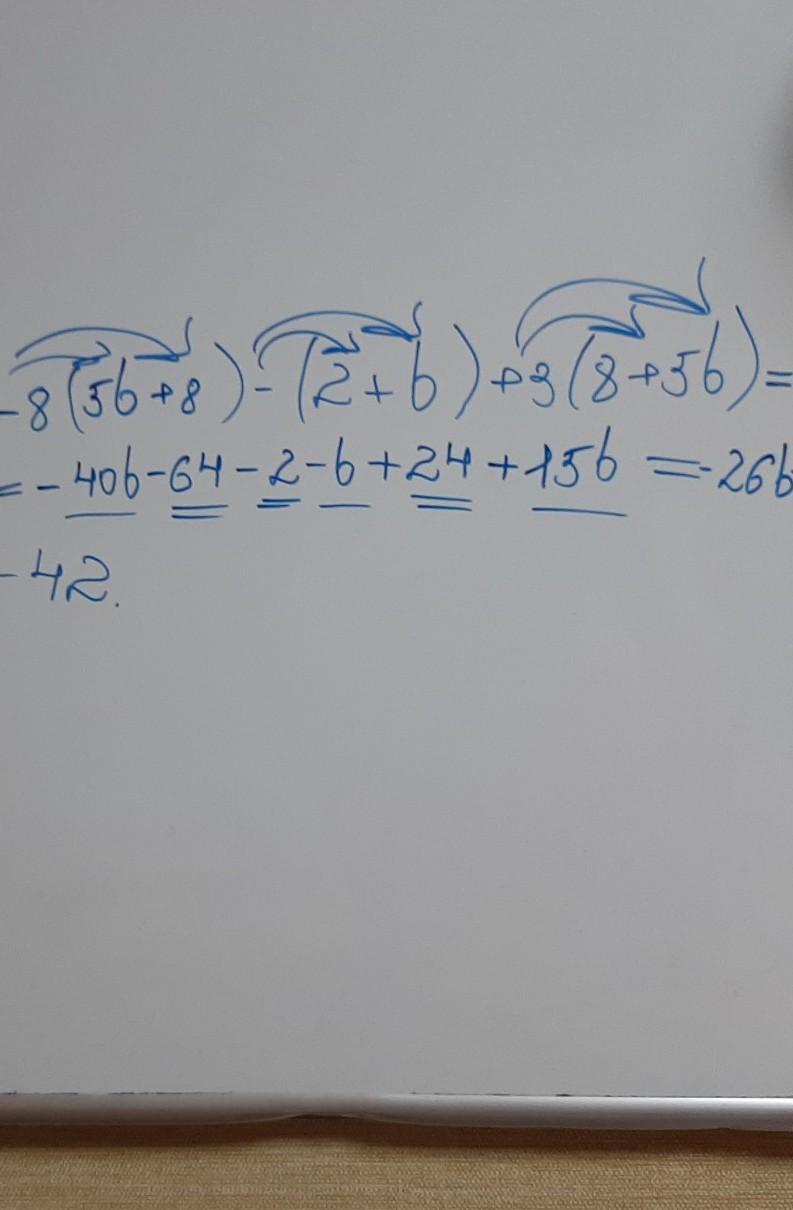 -8(5b+8)-(2+b)+3(8+5b)=
=-40b-64-2-b+24+15b=-26b
-42.